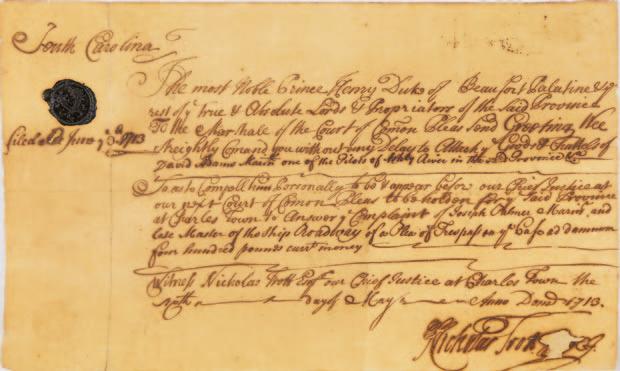 South Carolina
The most Noble Prince Henry Duke of Beaufort Palatine & ye
rest of ye true & Absolute Lords & Propriators of the Said Province
To the Marshale of the Court of Comon Pleas Send Greeting Wee
Streightly Comand you without any Delay to Attach ye Goods & Chattels of
filed June 1713
David Adams Marinr one of the Pilots of Ashly River in the said Province
So as to Compell him Personally to be & appear before our Chief Justice at
our next Court of Comon Pleas to be holden for ye Said Province
at Charles Town to Answer ye Complaint of Joseph Palmer Marinr and
late Master of the Ship Roadway of a Plea of Trespass on ye Case ad damnum
four hundred pounds currt money
Witness Nicholas Trott Esqr our Chief Justice at Charles Town the
day of May Anno Dom 1713.
Nicholas Trott